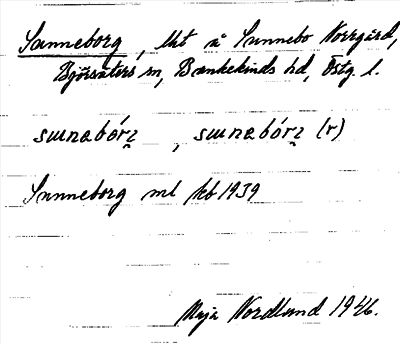 Sunneborg, lht å Sunnebo Norrgård,
Björsäters sn, Bankekinds hd, Östg. l.
sɯnabórʓ , sɯnabórʓ (r)
Sunneborg ml kb 1939
Maja Nordlund 1946.